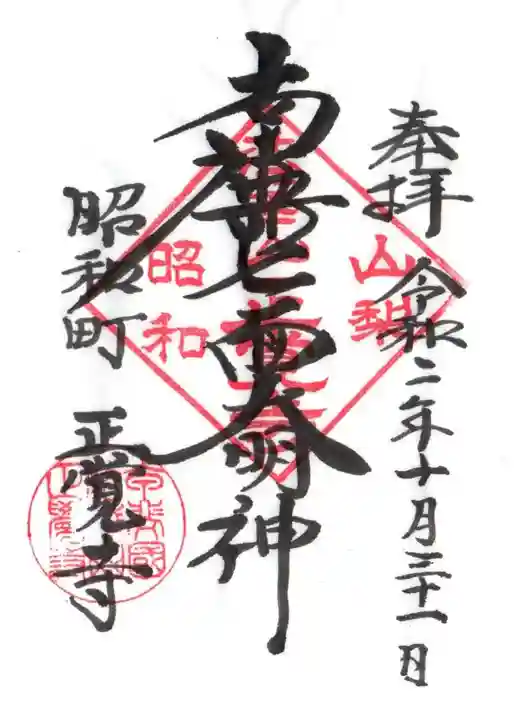 奉拝
令和二年十月三十一日
南無七面大明神
昭和町 正覚寺
山梨
昭和